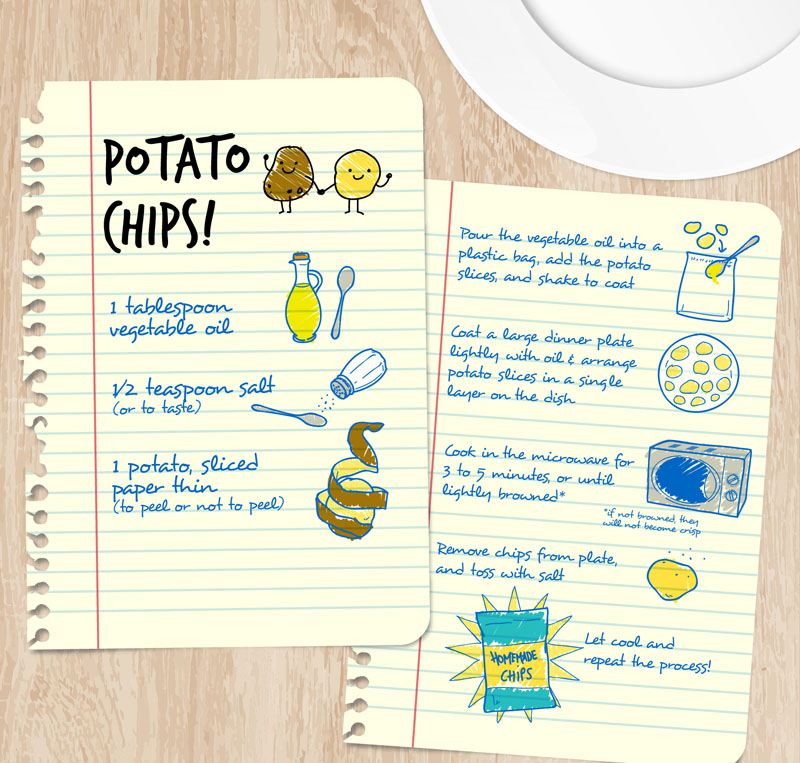 POTATO
CHIPS!
1 tablespoon
vegetable oil
1/2 teaspoon salt
(or to taste)
1 potato, sliced
paper thin
(to peel or not to peel)
Pour the vegetable oil into a
plastic bag, add the potato
slices, and shake to coat
Coat a large dinner plate
lightly with oil & arrange
potato slices in a single
layer on the dish
Cook in the microwave for
3 to 5 minutes, or until
lightly browned*
*if not browned, they
will not become crisp
Remove chips from plate,
and toss with salt
HOMEMADE
CHIPS
Let cool and
repeat the process!